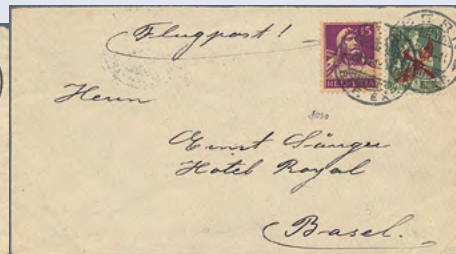 Flugpost!
15
HELVETIA
Herrn
Ernst Sänger
Hotel Royal
Basel.